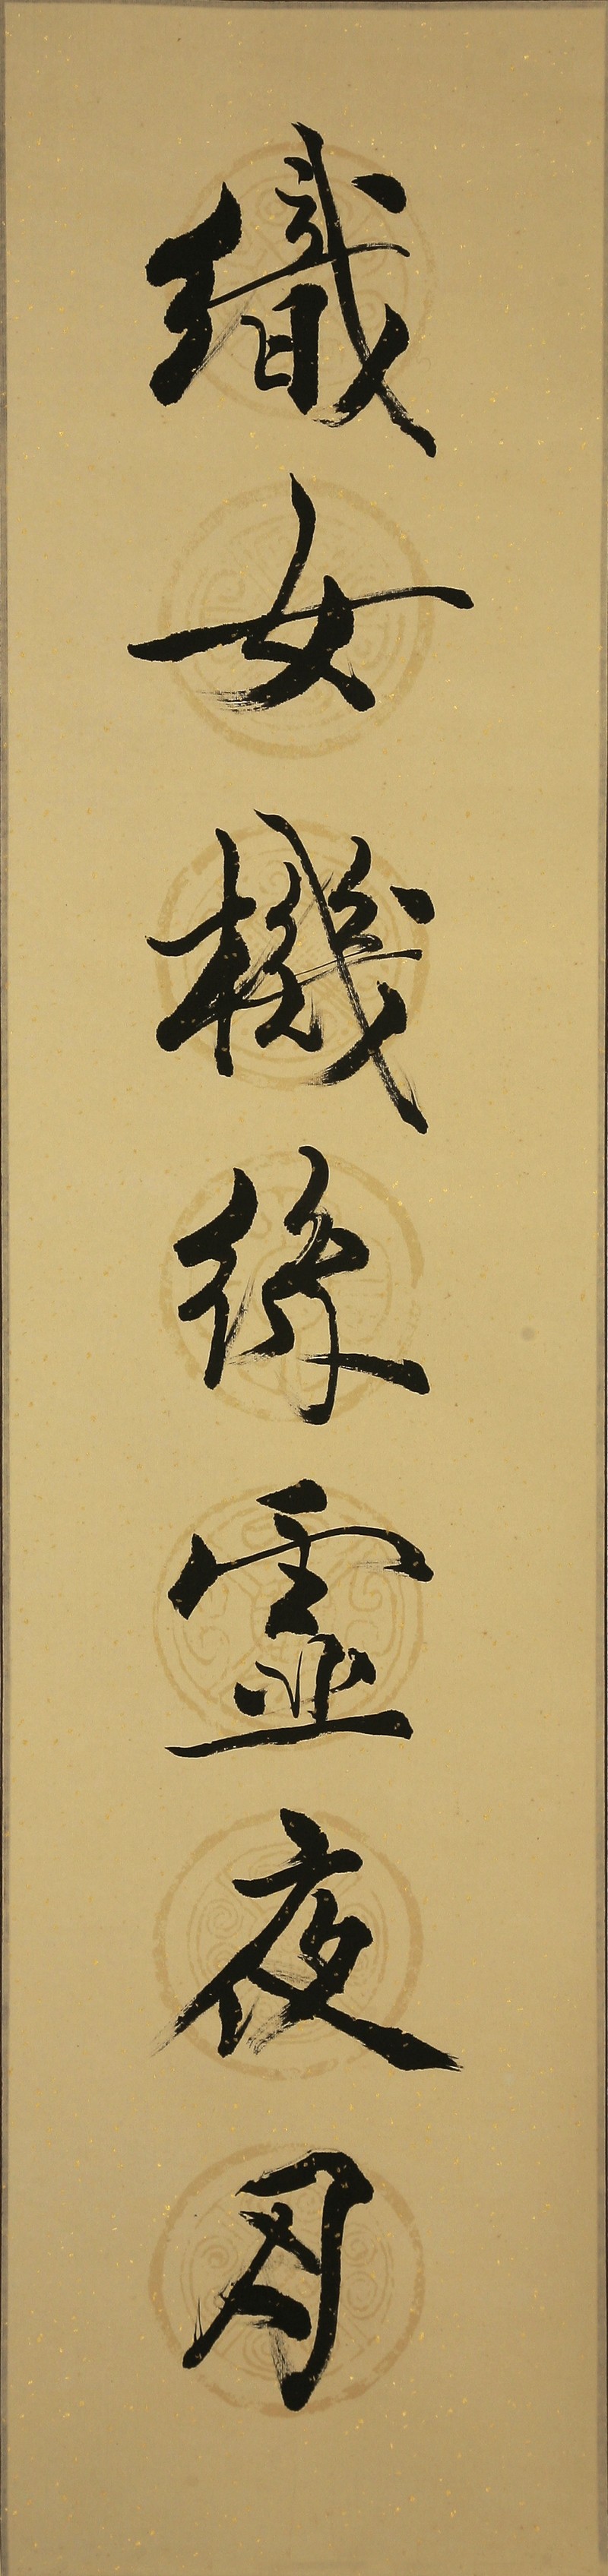 織女機絲虛夜月